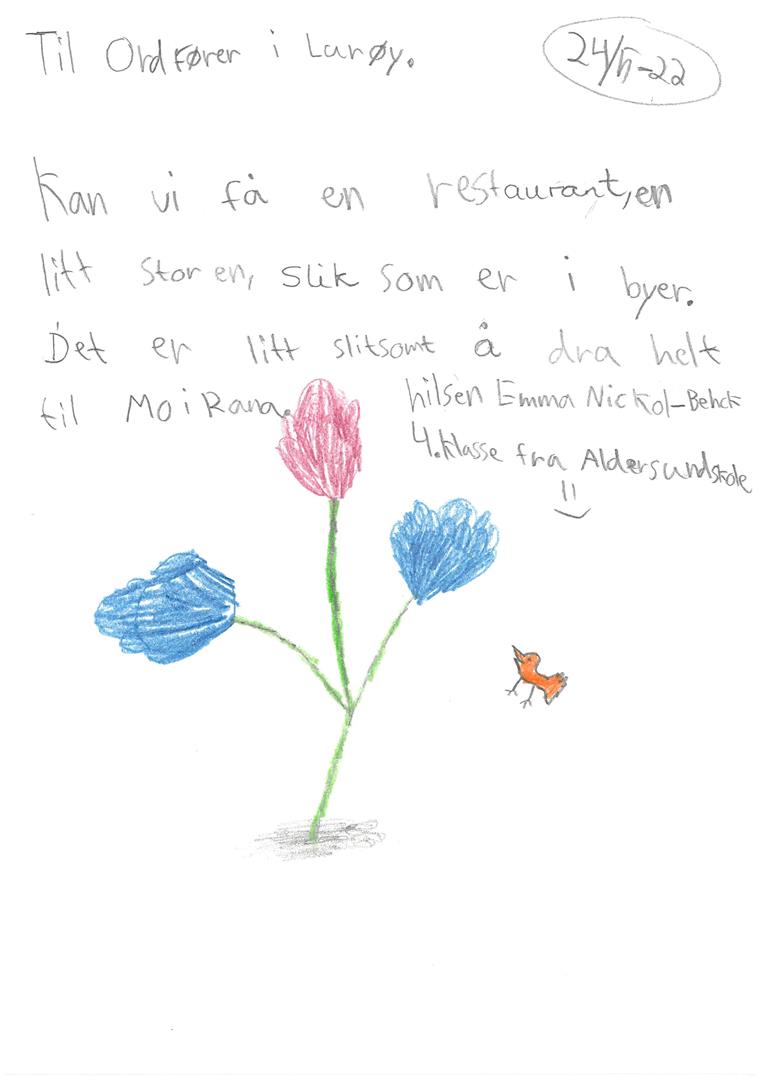 Til Ordfører i Lurøy.
24/5-22
Kan vi få en restaurant, en
litt stor en, slik som er i byer.
Det er litt slitsomt å dra helt
til Mo i Rana.
hilsen Emma Nickol-Behck
4. klasse fra Aldersundskole